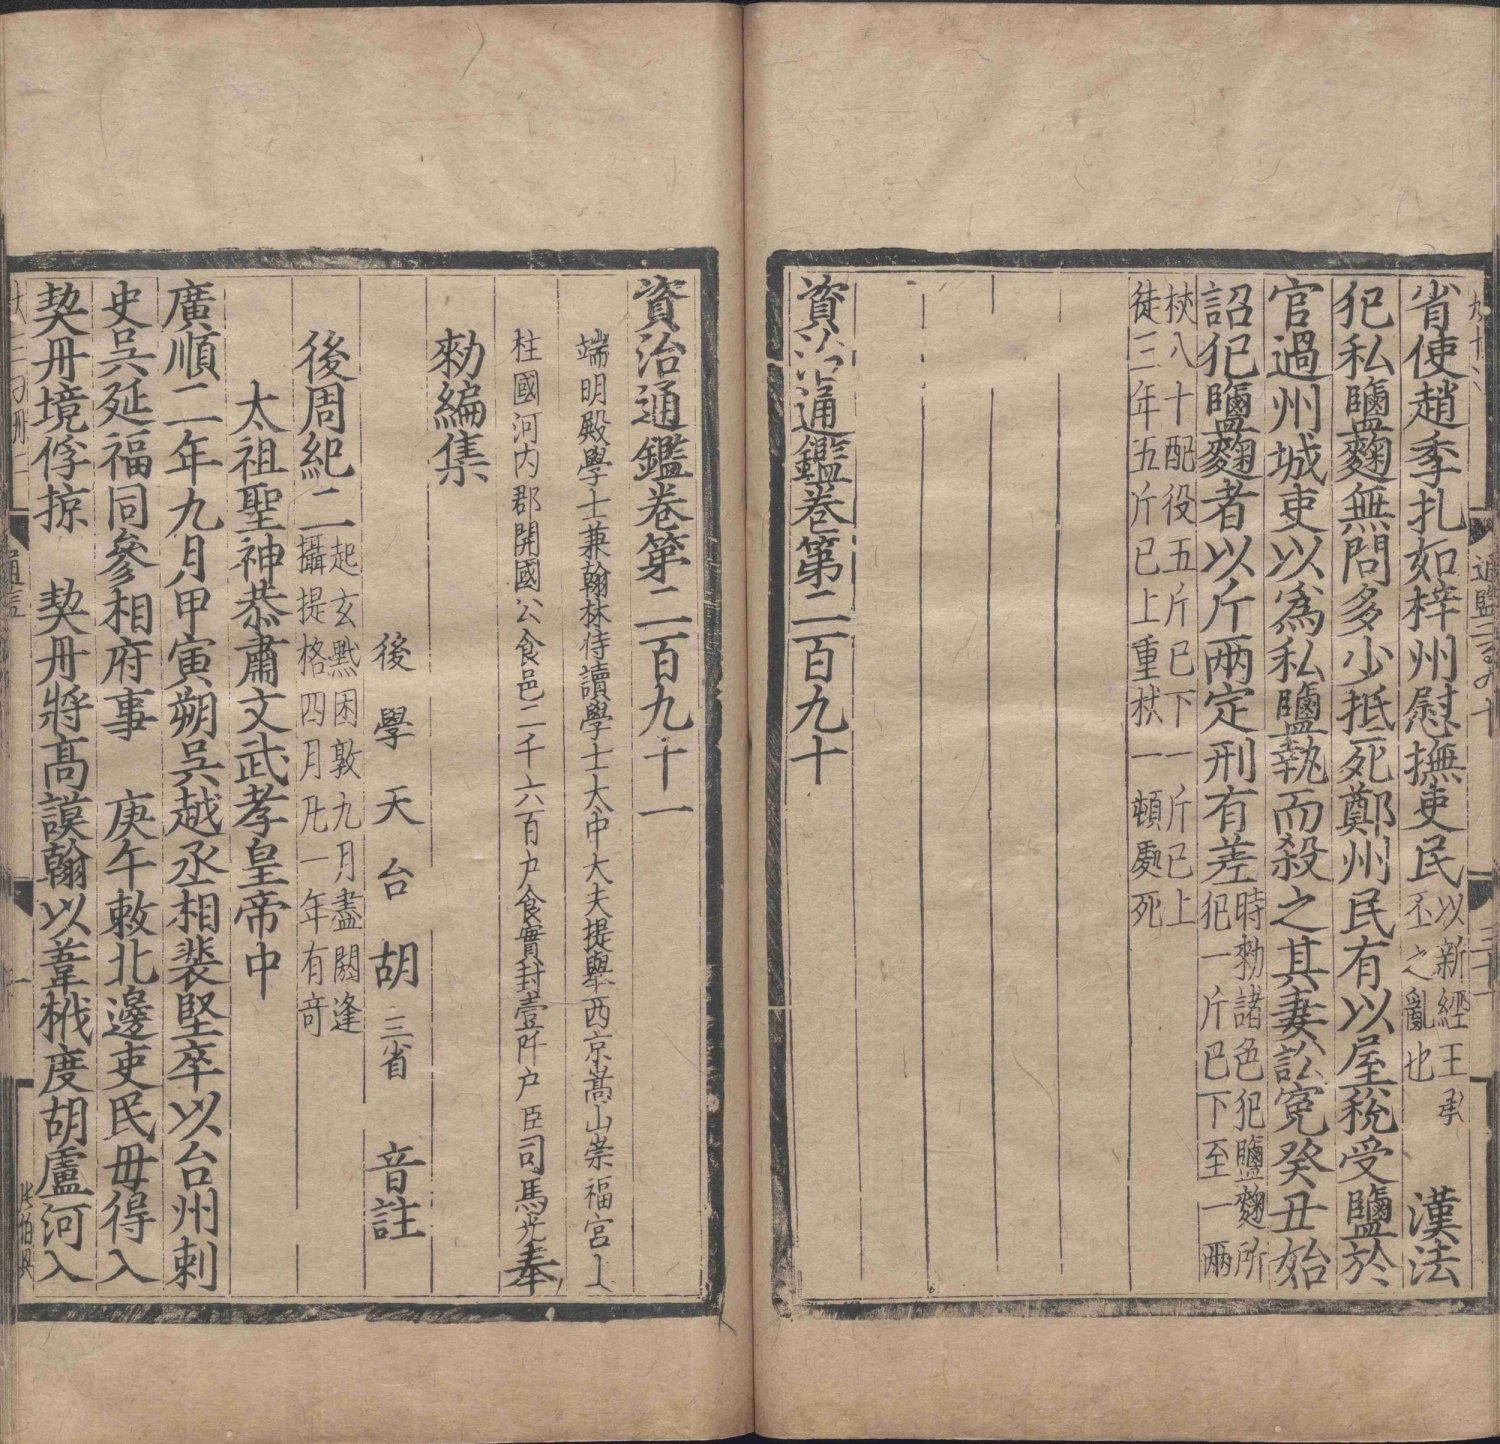 省使趙季扎如梓州慰撫吏民以新經王承丕之亂也　漢法
犯私鹽麴無問多少抵死鄭州民有以屋稅受鹽於
官過州城吏以爲私鹽執而殺之其妻訟冤癸丑始
詔犯鹽麴者以斤兩定刑有差時勑諸色犯鹽麴所犯一斤巳下至一兩
杖八十配役五斤巳下一斤巳上
徒三年五斤巳上重杖一頓處死
資治通鑑卷第二百九十
資治通鑑卷第二百九十一
端明殿學士兼翰林侍讀學士太中大夫提舉西京嵩山崇福宮上
柱國河內郡開國公食邑二千六百户食實封壹阡户臣司馬光奉
勑編集
後學天台胡三省音註
後周紀二起玄黓困敦九月盡閼逢攝提格四月凡一年有奇
太祖聖神恭肅文武孝皇帝中
廣順二年九月甲寅朔吳越丞相裴堅卒以台州刺
史吳延福同參相府事　庚午敕北邊吏民毋得入
契丹境俘掠　契丹將高謨翰以葦栰度胡盧河入